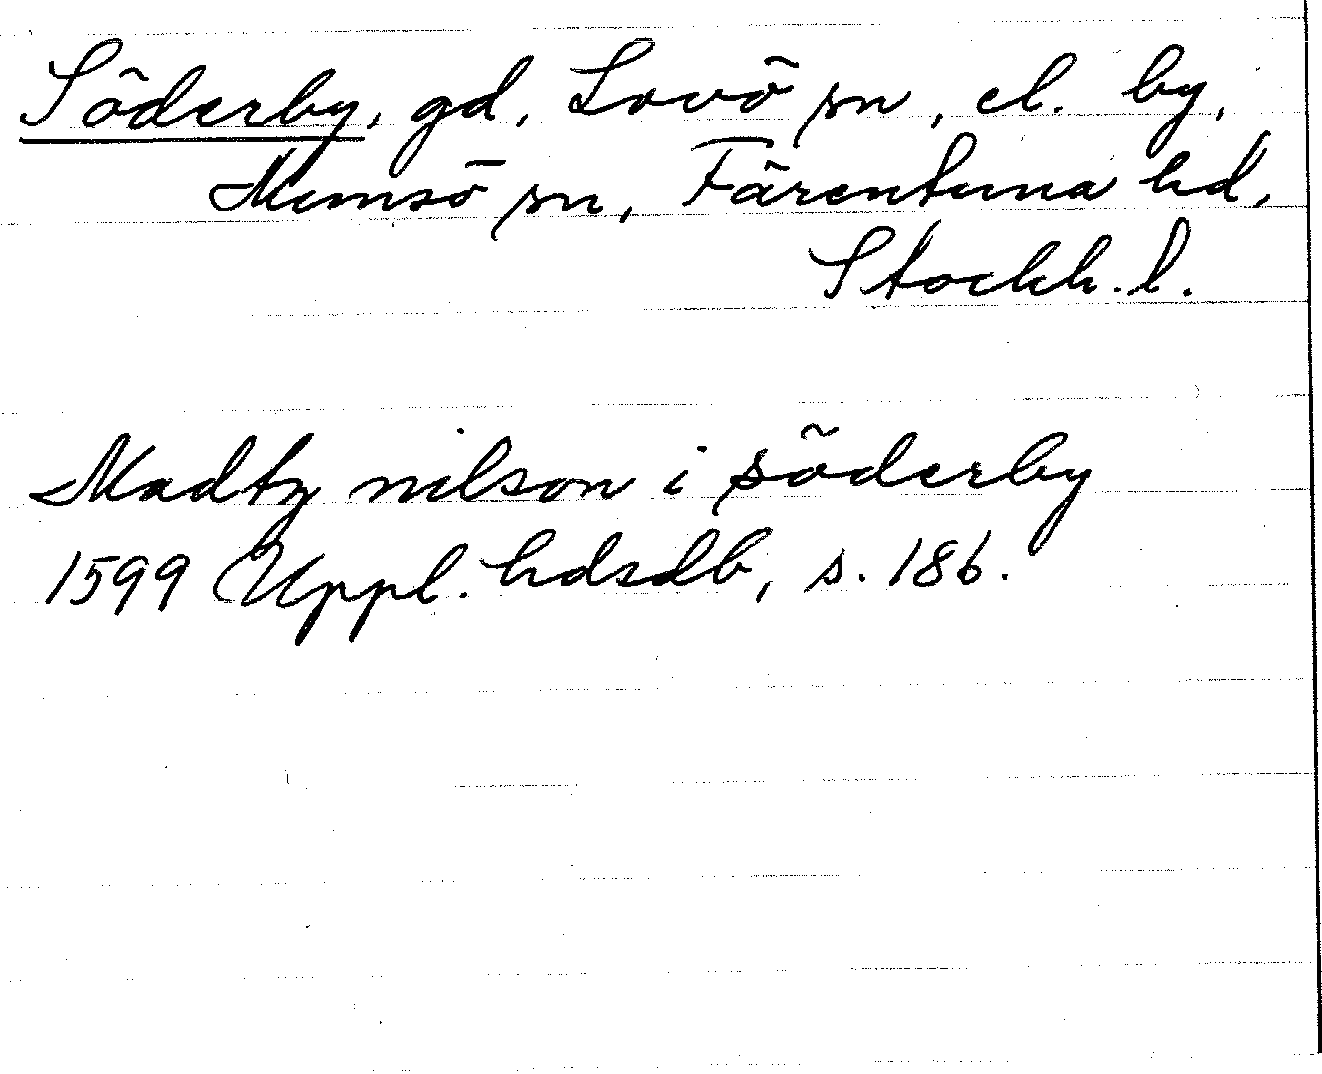 Söderby, gd, Lovö sn, el. by,
Munsö sn, Färentuna hd,
Stockh. l.
Madtz nilson i söderby
1599 Uppl. hdsdb, s. 186.